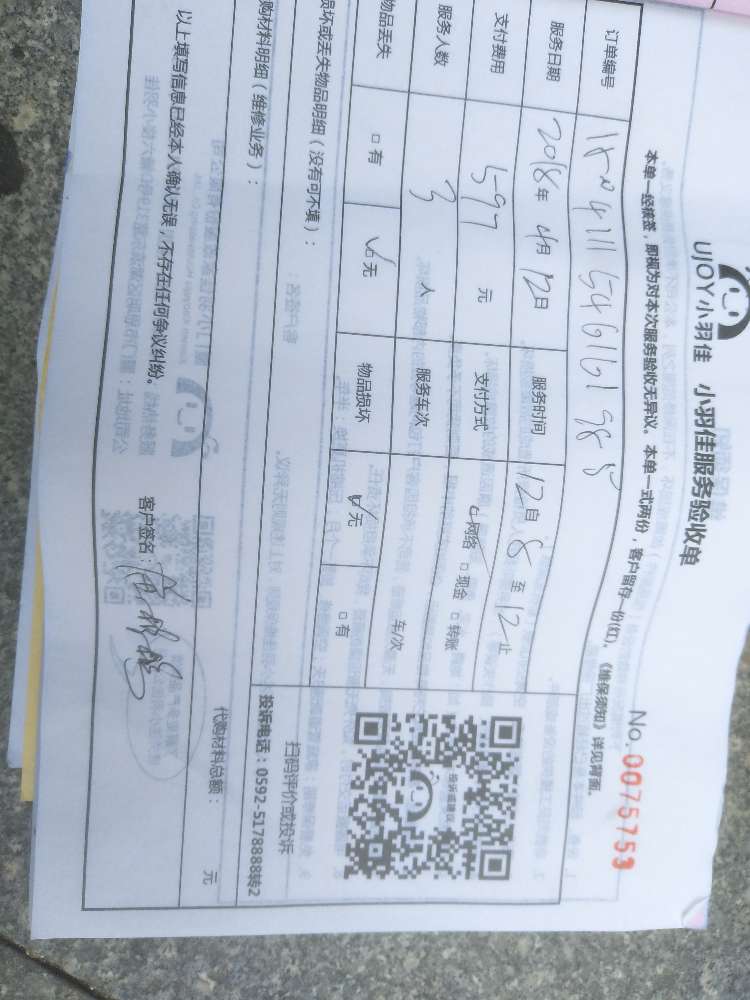 UJOY小羽佳 小羽佳服务验收单
No. 0075753
本单一经核签，即视为对本次服务验收无异议。本单一式两份，客户留存一份(红)。《维保须知》详见背面。
订单编号
服务日期 2018年 4月 12日 服务时间 12自 8 至 12止
支付费用 597 元 支付方式 网络 现金 转账
服务人数 3 人 服务车次 车/次
物品丢失 有 无 物品损坏 无 有
损坏或丢失物品明细（没有可不填）：
投诉或建议
扫码评价或投诉
投诉电话：0592-5178888转2
购材料明细（维修业务）：
代购材料总额： 元
以上填写信息已经本人确认无误，不存在任何争议纠纷。 客户签名：